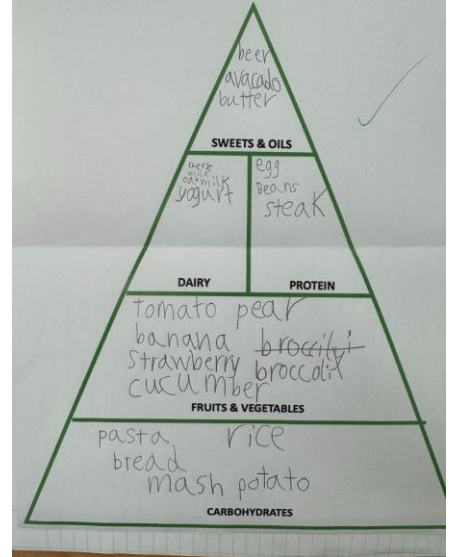 beer
avacado
butter
SWEETS & OILS
cheese
milk
oatmilk
yogurt
egg
Beans
steak
DAIRY
PROTEIN
tomato pear
banana broccilyi
strawberry broccolit
cucumber
FRUITS & VEGETABLES
pasta rice
bread
mash potato
CARBOHYDRATES